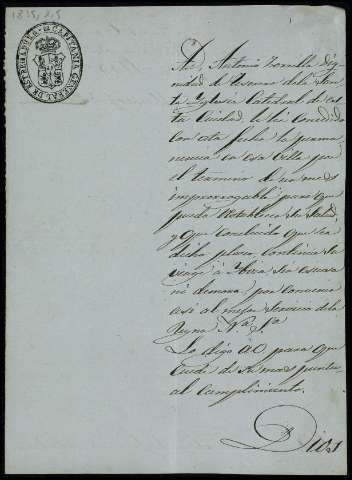 CAPITANIA GENERAL DE ESTREMADURA
A D. Antonio Dig
nidad de Tesorero de la San
ta Yglesia Catedral de es
ta Ciudad le he concedido
con esta fecha la perma
nencia en esa Villa por
el termino de un mes
improrrogable para que
pueda restablecer su salud,
y que concluido que sea
dicho plazo, continue su
viage á sin escusa
ni demora por convenir
asi al mejor servicio de la
Reyna N.ª S.ª
Lo digo á V. para que
cuide de su mas puntu
al cumplimiento.
Dios